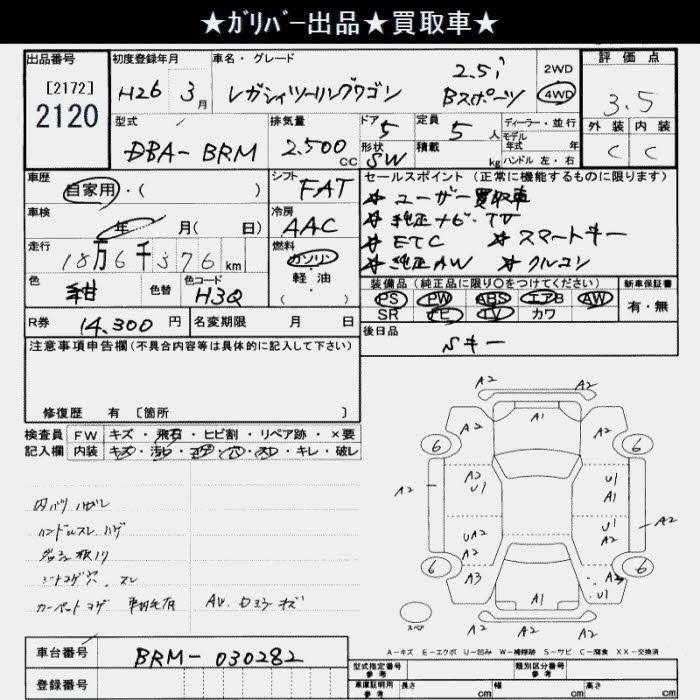 ★ｶﾞﾘﾊﾞｰ出品★買取車★
出品番号 初度登録年月 車名・グレード 評価点
[2172] H26 3月 レガシィツーリングワゴン 2.5i Bスポーツ 2WD 4WD 3.5
2120 型式 排気量 ドア 定員 ディーラー・並行 外装 内装
DBA-BRM 2.500 CC 5 形状 SW 5人 積載 kg モデル年式 年 ハンドル 左・右 C C
車歴 自家用・( ) シフト FAT セールスポイント (正常に機能するものに限ります)
☆ユーザー買取車
車検 年 月( 日) 冷房 AAC ☆純正ナビ・TV
☆ETC ☆スマートキー
走行 18万6千376km 燃料 ガソリン・軽油・( ) ☆純正AW ☆クルコン
色 紺 色替 色コード H3Q 装備品 (純正品に限り○をつけてください) 新車保証書
PS PW ABS エアB AW 有・無
SR TV カワ
R券 14,300円 名変期限 月 日 後日品 Sキー
注意事項申告欄(不具合内容等は具体的に記入して下さい)
修復歴 有 [箇所 ]
検査員 FW キズ・飛石・ヒビ割・リペア跡・×要
記入欄 内装 キズ・汚れ・コゲ・穴・スレ・キレ・破レ
内バリ ハガレ
ハンドルスレ ハゲ
シートコゲ穴、スレ
カーペットコゲ AW. ロヌケ キズ
A2 A2
A1
A2 A2
6 6
A2 A2 U1 U1 A1
UA2 A2 U1 A2 A2
6 6
A3 A1 A3 U1
A2 A2
A-キズ E-エクボ U-凹み W-補修跡 S-サビ C-腐食 XX-交換済
車台番号 BRM-030282
登録番号
型式指定番号 参考 類別区分番号 参考
車庫証明用 参考 長さ cm 幅 cm 高さ cm